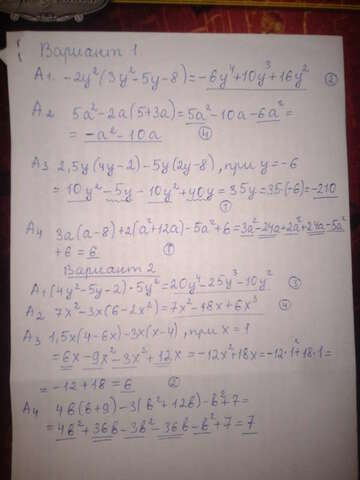 Вариант 1.
А1. -2y²(3y²-5y-8)=-6y⁴+10y³+16y² ②
А2 5a²-2a(5+3a)=5a²-10a-6a²=
= -a²-10a ④
А3 2,5y(4y-2)-5y(2y-8), при y=-6
= 10y²-5y-10y²+40y=35y=35·(-6)=-210
①
А4 3a(a-8)+2(a²+12a)-5a²+6=3a²-24a+2a²+24a-5a²
+6=6 ①
Вариант 2
А1 (4y²-5y-2)·5y²=20y⁴-25y³-10y² ③
А2 7x²-3x(6-2x²)=7x²-18x+6x³ ④
А3 1,5x(4-6x)-3x(x-4), при x=1
= 6x-9x²-3x²+12x=-12x²+18x=-12·1²+18·1=
= -12+18=6 ②
А4 4в(в+9)-3(в²+12в)-в²+7=
= 4в²+36в-3в²-36в-в²+7=7